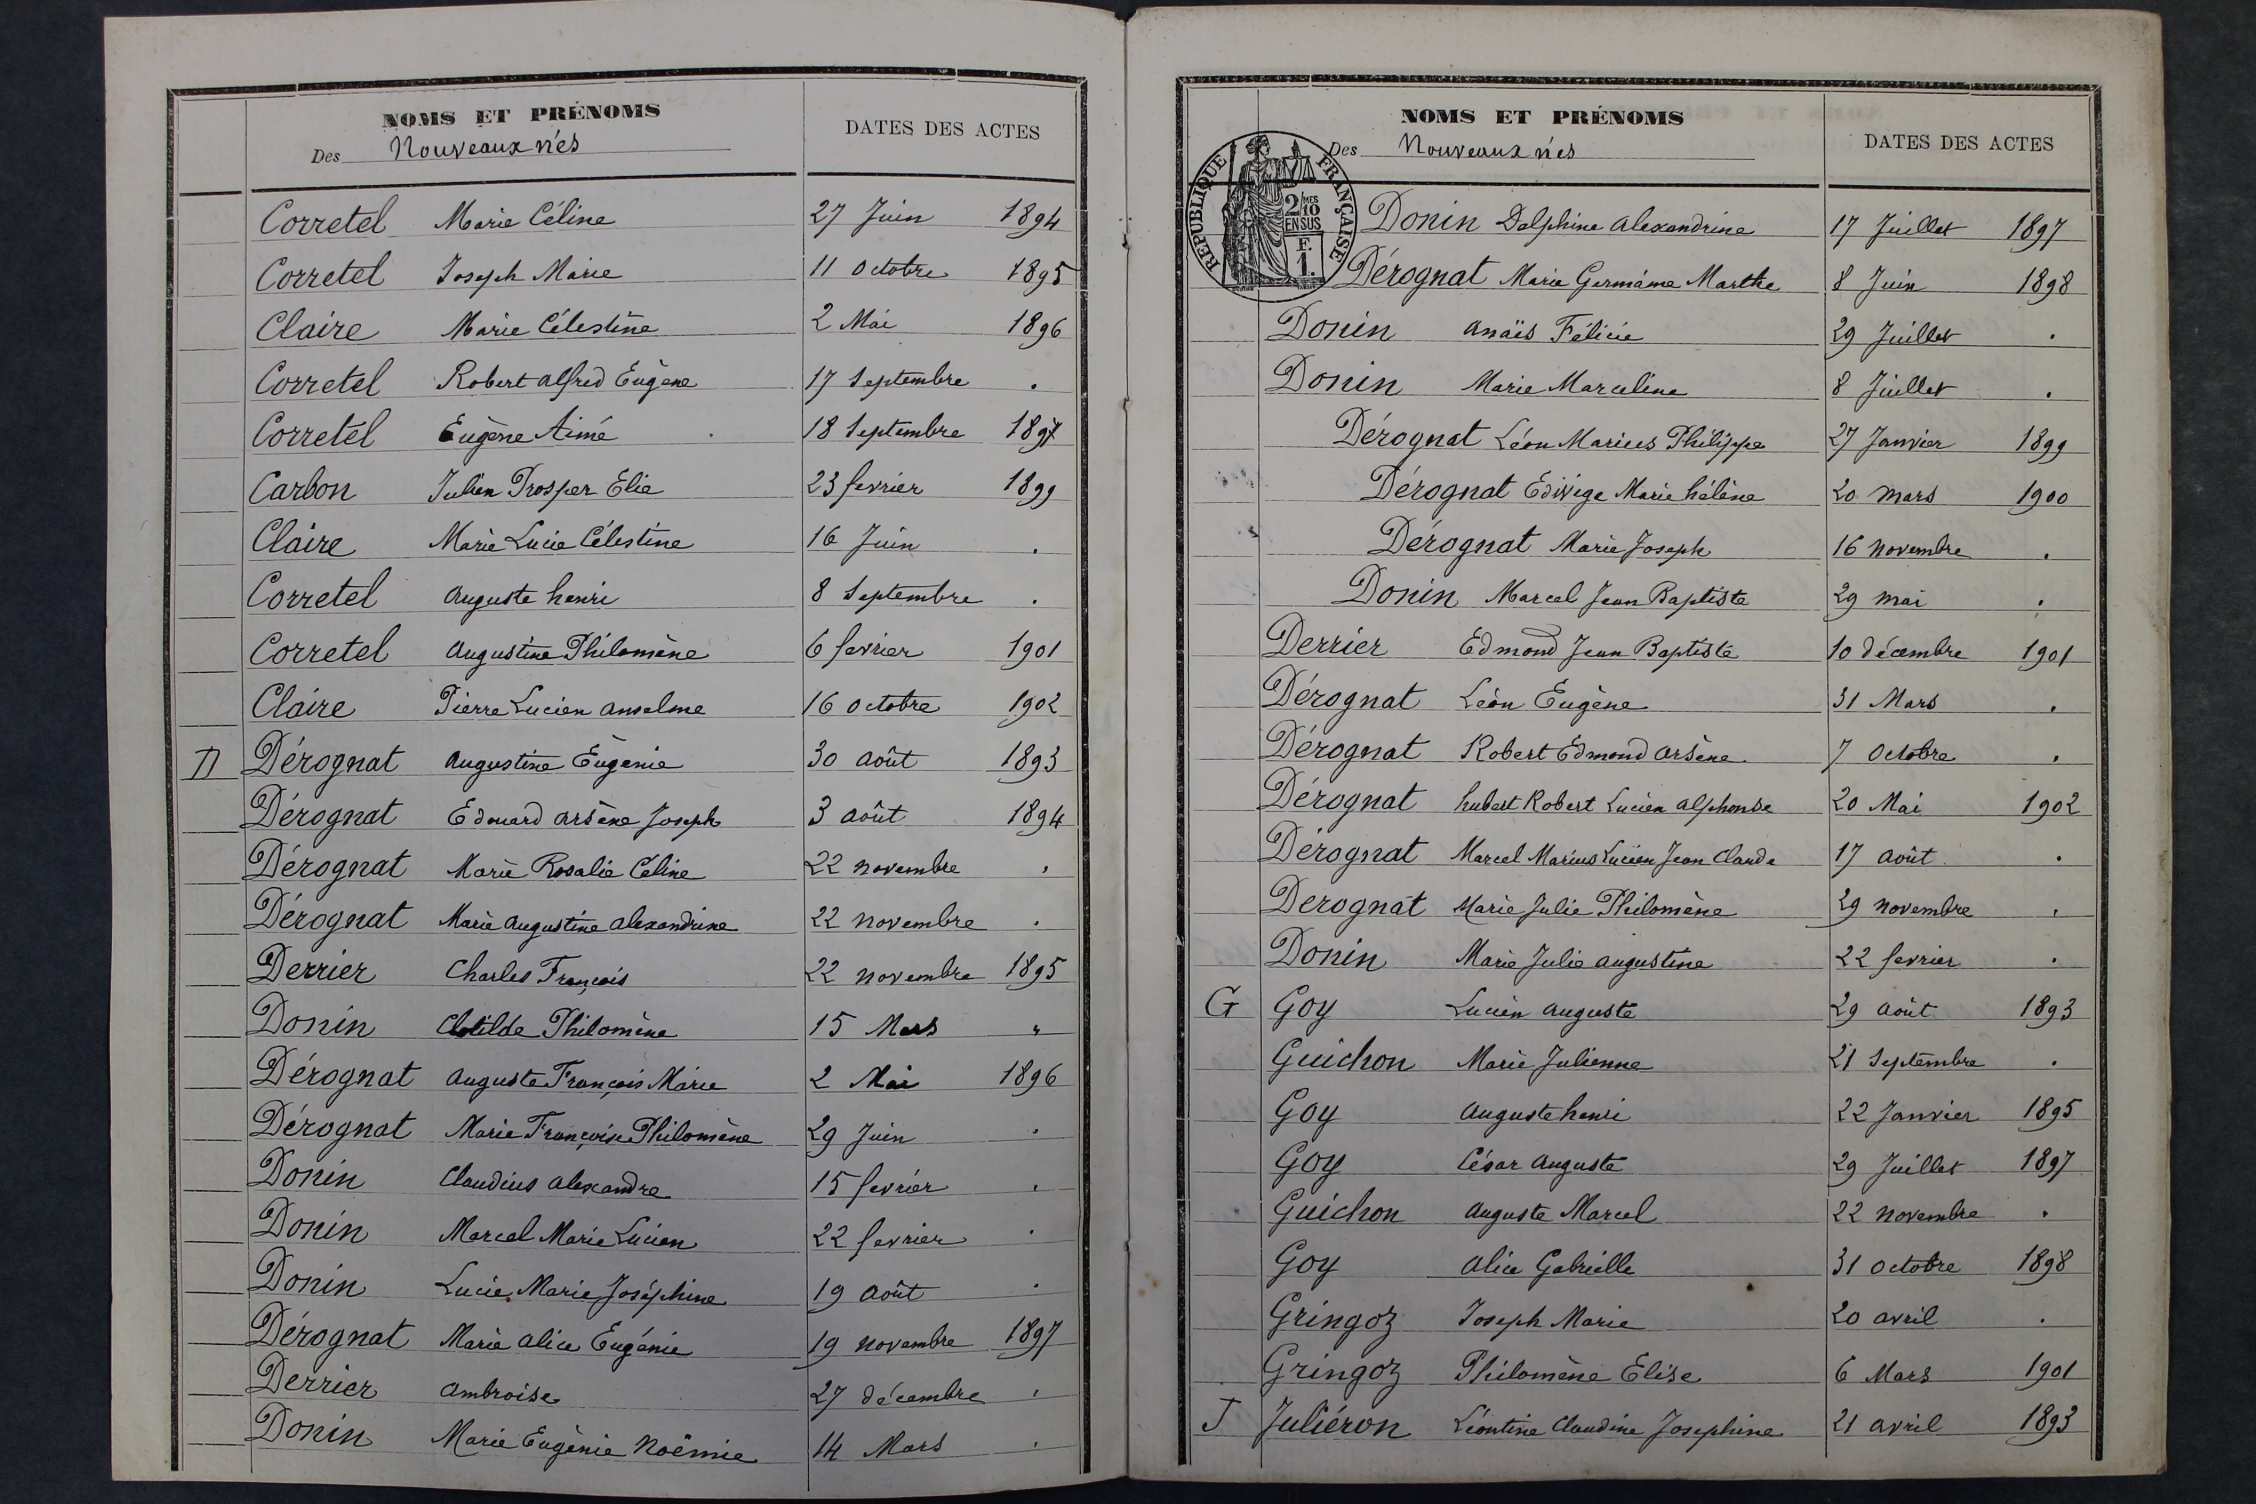 NOMS ET PRÉNOMS
DATES DES ACTES
Des Nouveaux nés
Corretel Marie Céline 27 Juin 1894
Corretel Joseph Marie 11 octobre 1895
Claire Marie Célestine 2 Mai 1896
Corretel Robert alfred Eugène 17 Septembre .
Corretel Eugène Aimé 18 Septembre 1897
Carbon Julien Prosper Elie 23 fevrier 1899
Claire Marie Lucie Célestine 16 Juin .
Corretel auguste henri 8 Septembre .
Corretel augustine Philomène 6 fevrier 1901
Claire Pierre Lucien anselme 16 octobre 1902
D Dérognat augustine Eugènie 30 août 1893
Dérognat Edouard arsène Joseph 3 août 1894
Dérognat Marie Rosalie Céline 22 novembre .
Dérognat Marie augustine alexandrine 22 novembre .
Derrier Charles François 22 novembre 1895
Donin Clotilde Philomène 15 Mars "
Dérognat auguste François Marie 2 Mai 1896
Dérognat Marie Françoise Philomène 29 Juin .
Donin Claudius alexandre 15 fevrier .
Donin Marcel Marie Lucien 22 fevrier .
Donin Lucie Marie Joséphine 19 août .
Dérognat Marie alice Eugénie 19 novembre 1897
Derrier ambroise 27 décembre .
Donin Marie Eugènie Noëmie 14 Mars .
NOMS ET PRÉNOMS
DATES DES ACTES
Des Nouveaux nés
RÉPUBLIQUE FRANÇAISE
2 MES
10
EN SUS
F.
1.
Donin Delphine alexandrine 17 Juillet 1897
Dérognat Marie Germaine Marthe 8 Juin 1898
Donin anaïs Félicie 29 Juillet .
Donin Marie Marceline 8 Juillet .
Dérognat Léon Marius Philippe 27 Janvier 1899
Dérognat Edivige Marie hélène 20 mars 1900
Dérognat Marie Joseph 16 novembre .
Donin Marcel Jean Baptiste 29 mai .
Derrier Edmond Jean Baptiste 10 décembre 1901
Dérognat Léon Eugène 31 Mars .
Dérognat Robert Edmond arsène 7 octobre .
Dérognat hubert Robert Lucien alphonse 20 Mai 1902
Dérognat Marcel Marius Lucien Jean Claude 17 août .
Derognat Marie Julie Philomène 29 novembre .
Donin Marie Julie augustine 22 fevrier .
G Goy Lucien auguste 29 août 1893
Guichon Marie Julienne 21 Septembre .
Goy auguste henri 22 Janvier 1895
Goy César auguste 29 Juillet 1897
Guichon auguste Marcel 22 novembre .
Goy alice Gabrielle 31 octobre 1898
Gringoz Joseph Marie 20 avril .
Gringoz Philomène Elise 6 Mars 1901
J Juliéron Léontine Claudine Josephine 21 avril 1893